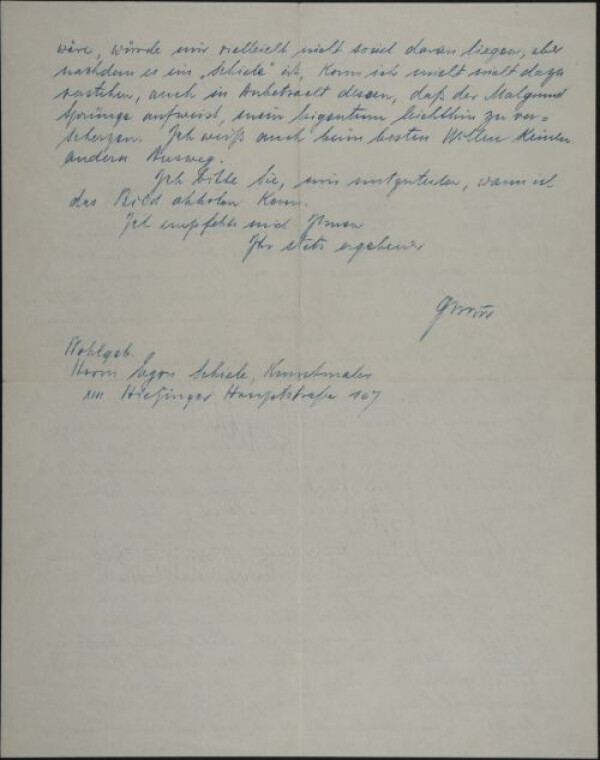 wäre, würde mir vielleicht nicht soviel daran liegen, aber
nachdem es ein „Schiele" ist, kann ich mich nicht dazu
verstehen, auch in Anbetracht dessen, daß der Malgrund
Sprünge aufweist, mein Eigentum leichthin zu ver=
scherzen. Ich weiß auch beim besten Willen keinen
andern Ausweg.
Ich bitte Sie, mir mitzuteilen, wann ich
das Bild abholen kann.
Ich empfehle mich Ihnen
Ihr stets ergebener
Wohlgeb.
Herrn Egon Schiele, Kunstmaler
XIII Hietzinger Hauptstraße 107